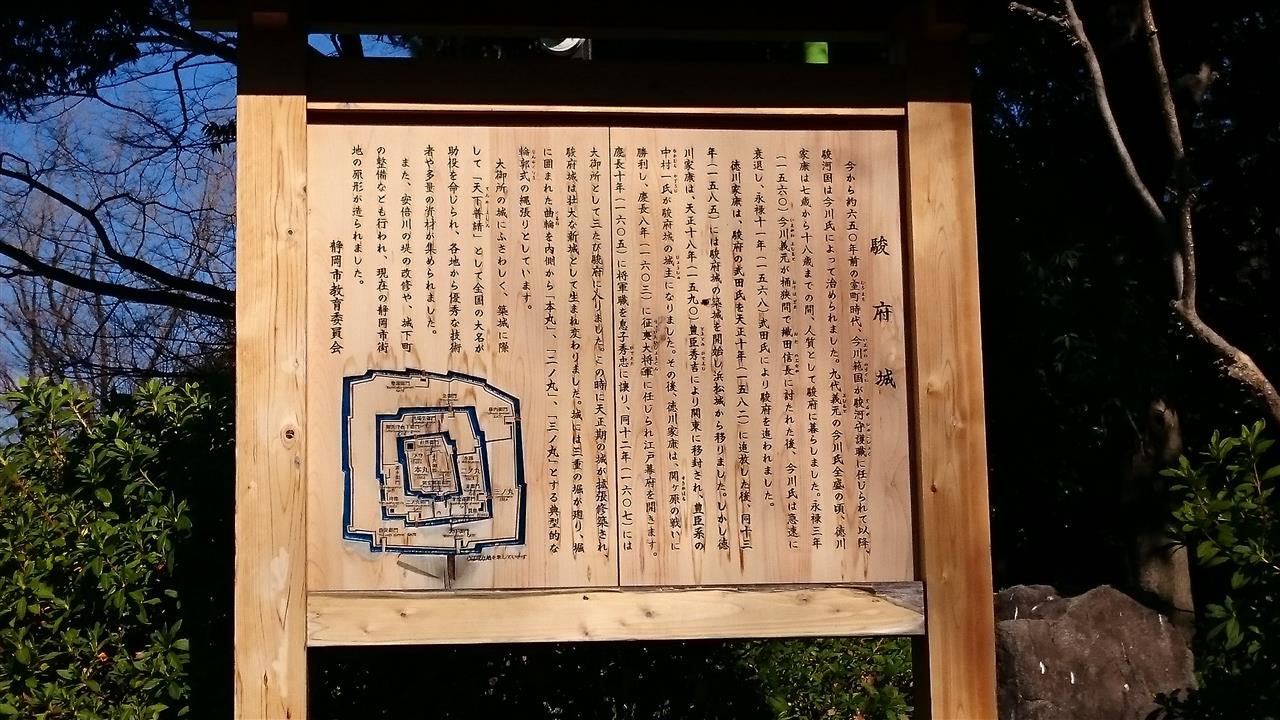 駿府城
今から約六五〇年前の室町時代、今川範国が駿河守護職に任じられて以降、
駿河国は今川氏によって治められました。九代義元の今川氏全盛の頃、徳川
家康は七歳から十八歳までの間、人質として駿府に暮らしました。永禄三年
(一五六〇)今川義元が桶狭間で織田信長に討たれた後、今川氏は急速に
衰退し、永禄十一年(一五六八)武田氏により駿府を追われました。
徳川家康は、駿府の武田氏を天正十年(一五八二)に追放した後、同十三
年(一五八五)には駿府城の築城を開始し浜松城から移りました。しかし徳
川家康は、天正十八年(一五九〇)豊臣秀吉により関東に移封され、豊臣系の
中村一氏が駿府城の城主になりました。その後、徳川家康は、関ヶ原の戦いに
勝利し、慶長八年(一六〇三)に征夷大将軍に任じられ江戸幕府を開きます。
慶長十年(一六〇五)に将軍職を息子秀忠に譲り、同十二年(一六〇七)には
大御所として二たび駿府に入りました。この時に天正期の城が拡張修築され、
駿府城は壮大な新城として生まれ変わりました。城には三重の堀が廻り、堀
に囲まれた曲輪を内側から「本丸」、「二ノ丸」、「三ノ丸」とする典型的な
輪郭式の縄張りとしています。
大御所の城にふさわしく、築城に際
して「天下普請」として全国の大名が
助役を命じられ、各地から優秀な技術
者や多量の資材が集められました。
また、安倍川の堤の改修や、城下町
の整備なども行われ、現在の静岡市街
地の原形が造られました。
静岡市教育委員会
本丸
二ノ丸
三ノ丸